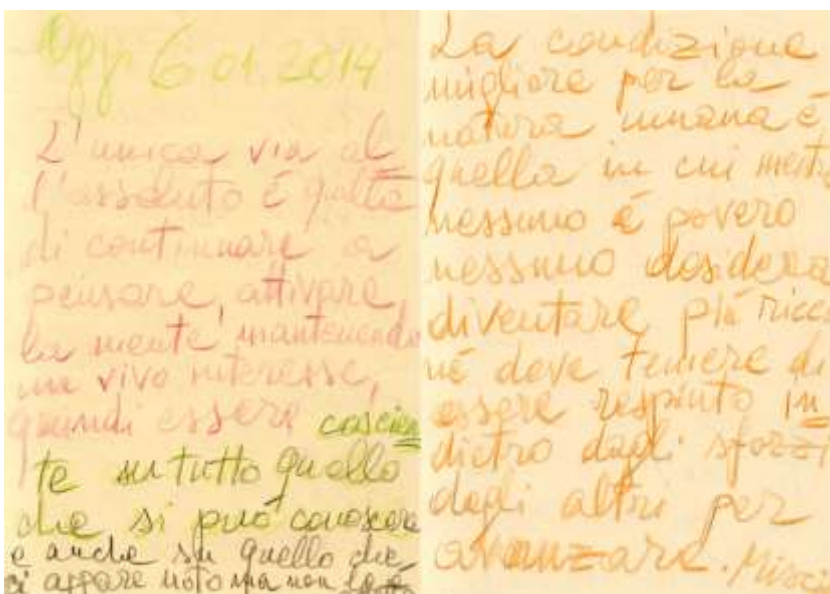 Oggi 6 01.2014
L'unica via al
l'assoluto è quella
di continuare a
pensare, attivare,
la mente mantenendo
un vivo interesse,
quindi essere coscien
te su tutto quello
che si può conoscere
e anche su quello che
ci appare noto ma non lo è
La condizione
migliore per la
natura umana è
quella in cui mentre
nessuno è povero
nessuno desidera
diventare più ricco
né deve temere di
essere respinto in
dietro dagli sforzi
degli altri per
avanzare.